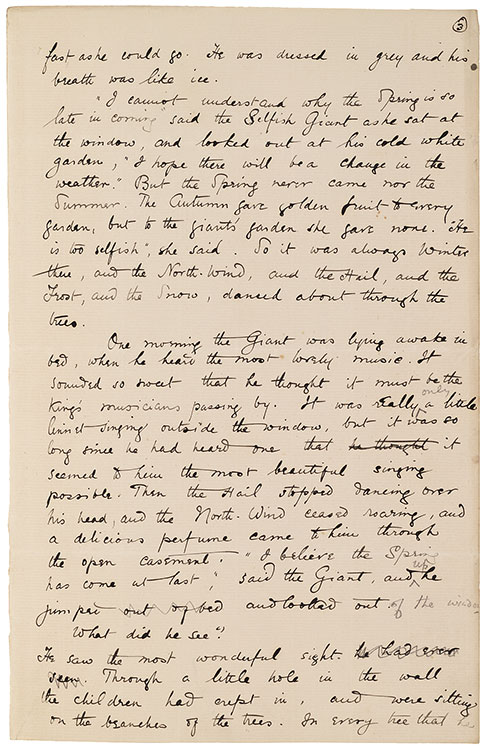 3
fast as he could go. He was dressed in grey and his
breath was like ice.
"I cannot understand why the Spring is so
late in coming said the Selfish Giant as he sat at
the window, and looked out at his cold white
garden, "I hope there will be a change in the
weather." But the Spring never came nor the
Summer. The Autumn gave golden fruit to every
garden, but to the giant's garden she gave none. "He
is too selfish", she said. So it was always Winter
there, and the North-Wind, and the Hail, and the
Frost, and the Snow, danced about through the
trees.
One morning the Giant was lying awake in
bed, when he heard the most lovely music. It
sounded so sweet that he thought it must be the
King's musicians passing by. It was really only a little
linnet singing outside the window, but it was so
long since he had heard one that he thought it
seemed to him the most beautiful singing
possible. Then the Hail stopped dancing over
his head, and the North-Wind ceased roaring, and
a delicious perfume came to him through
the open casement. "I believe the Spring
has come at last," said the Giant, and up he
jumped out of bed and looked out of the window
What did he see"?
He saw the most wonderful sight. he had ever
seen. Through a little hole in the wall
the children had crept in, and were sitting
on the branches of the trees. In every tree that he